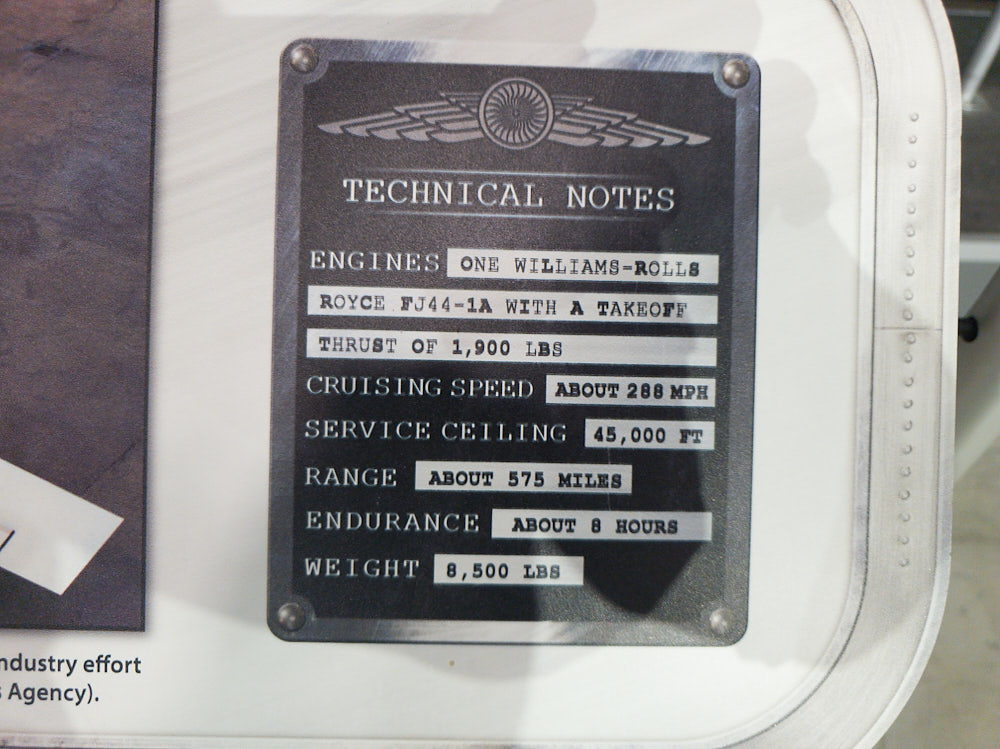 TECHNICAL NOTES
ENGINES ONE WILLIAMS-ROLLS
ROYCE FJ44-1A WITH A TAKEOFF
THRUST OF 1,900 LBS
CRUISING SPEED ABOUT 288 MPH
SERVICE CEILING 45,000 FT
RANGE ABOUT 575 MILES
ENDURANCE ABOUT 8 HOURS
WEIGHT 8,500 LBS
ndustry effort
s Agency).